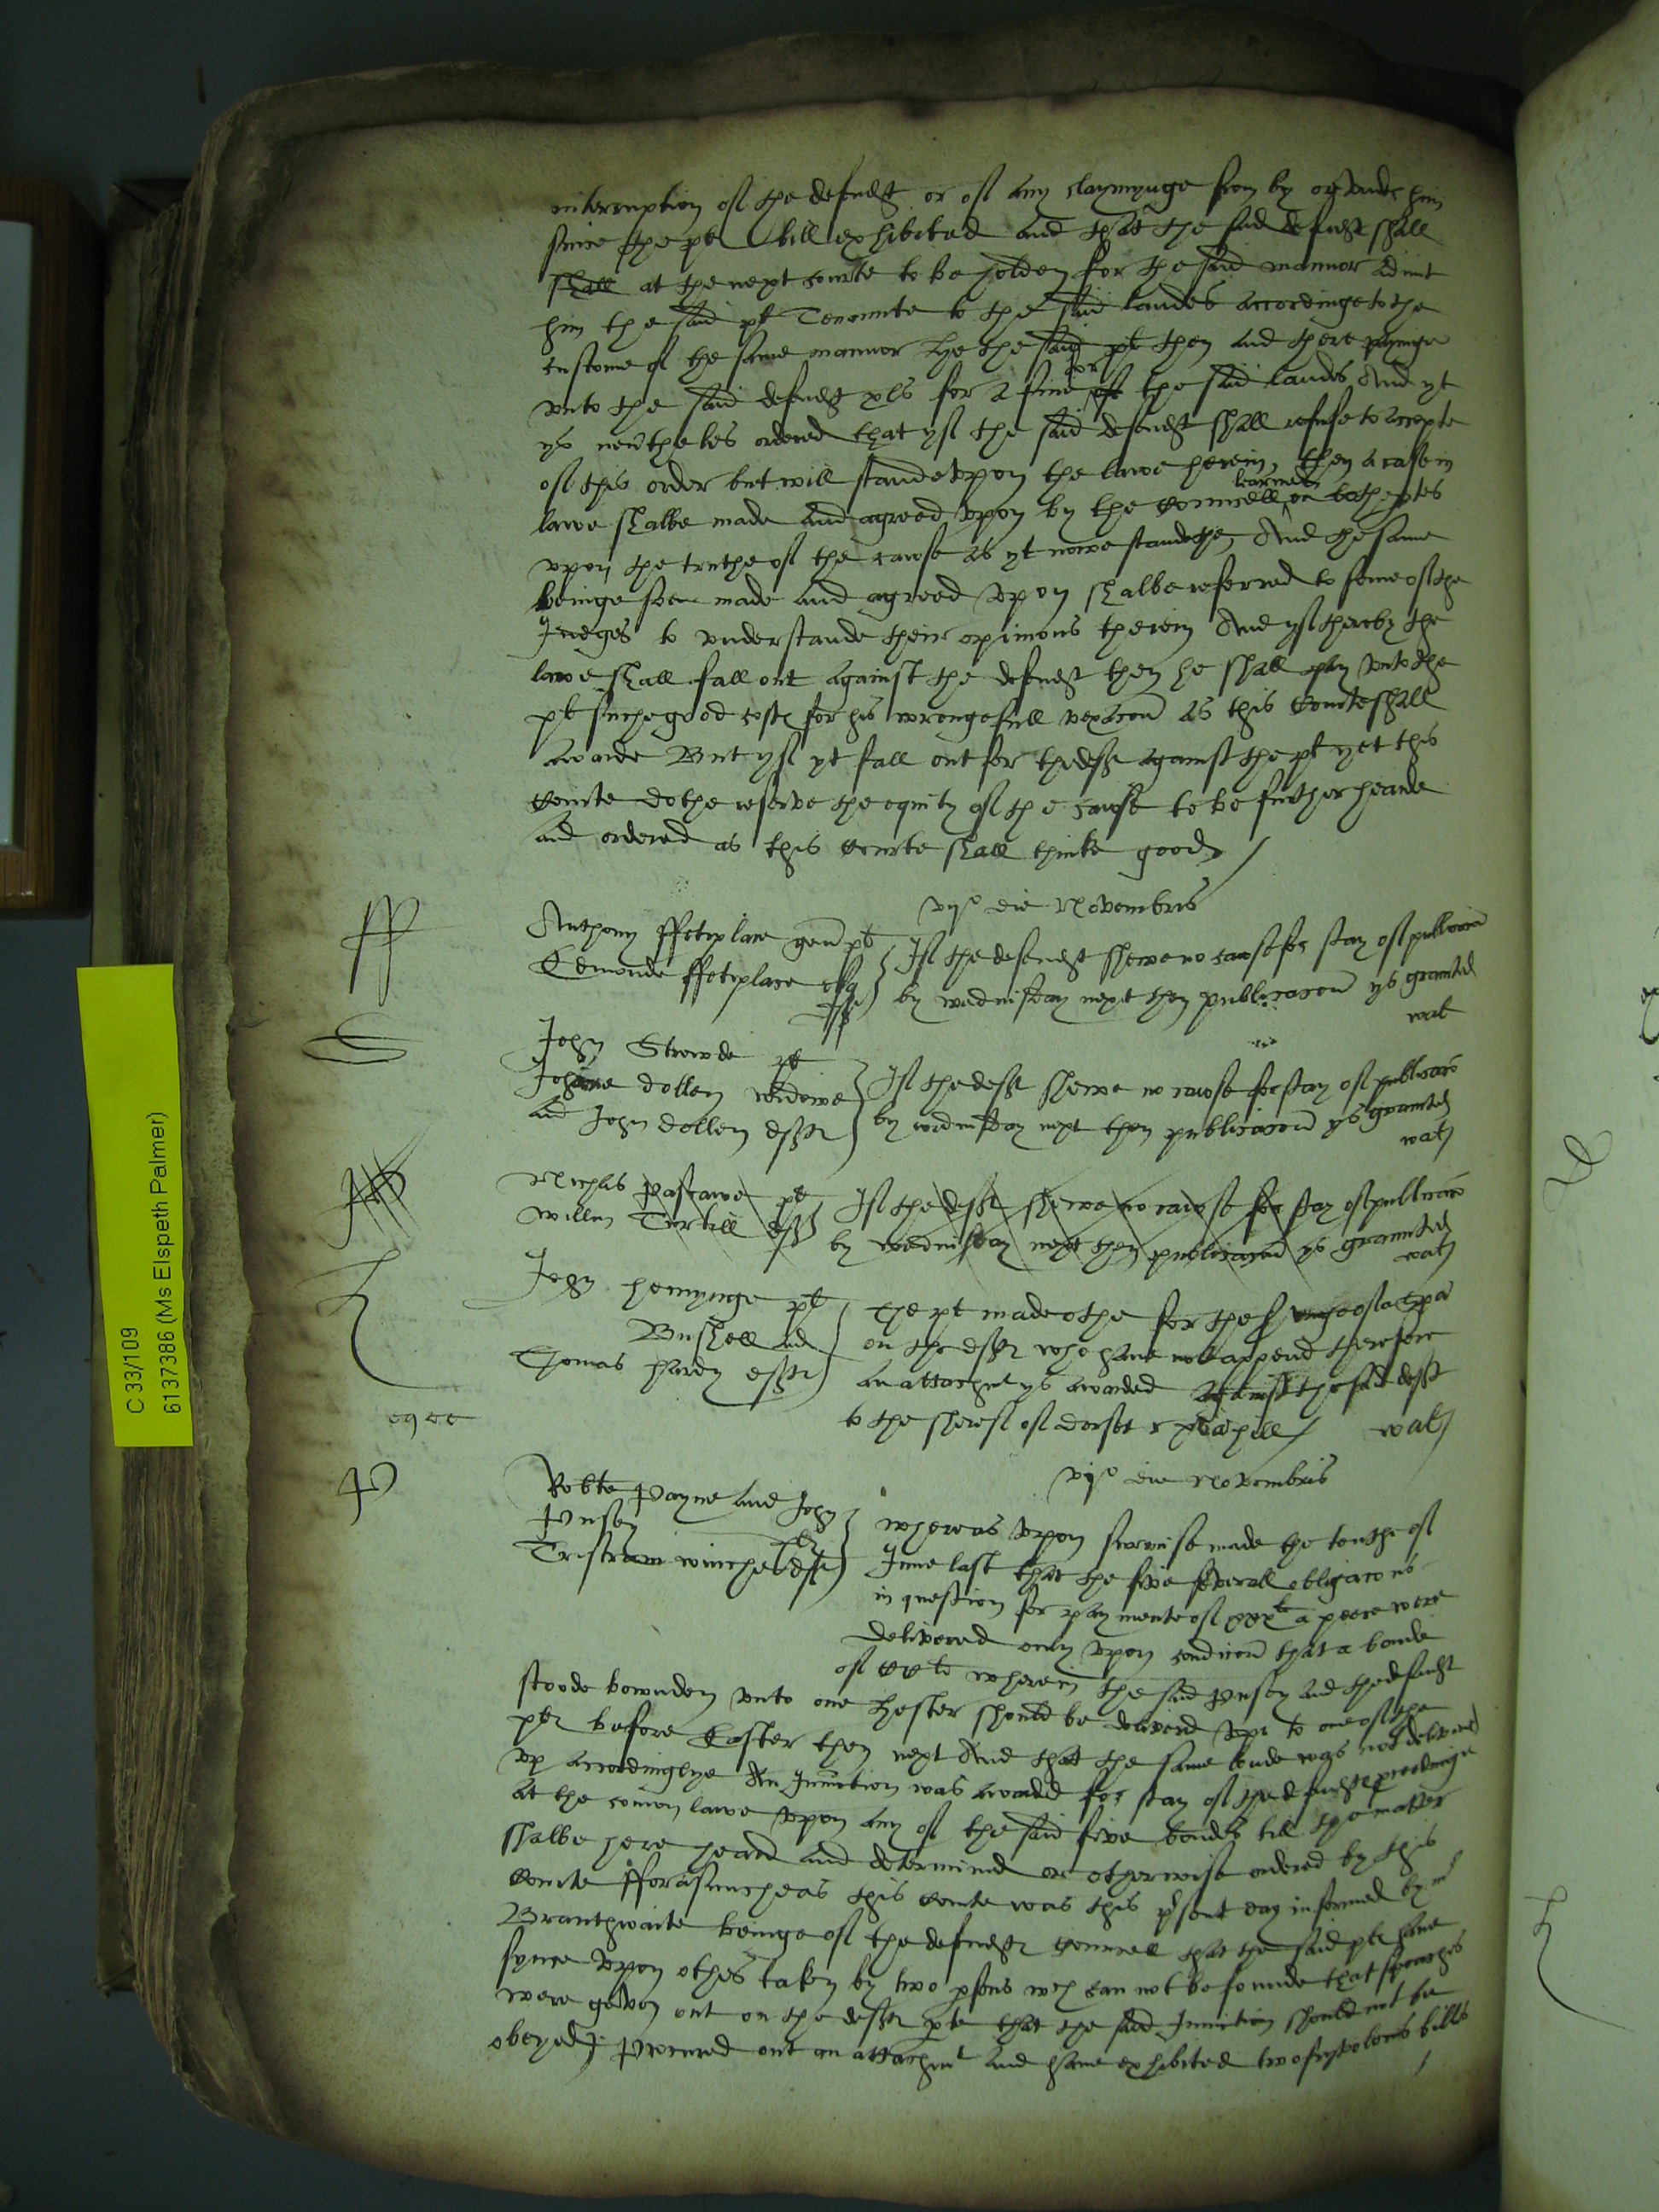 interruption of the defendt or of any claymynge from by or under him
since the plt bill exhibited and that the said defendt shall
shall at the next courte to be holden for the said mannor admit
him the said plt Tenaunte to the said landes accordinge to the
custome of the same mannor he the said plt then and there payinge
unto the said defendt xls for a fine for the said landes And yt
ys nevertheles ordered that yf the said defendt shall refuse to accepte
of this order but will stande upon the lawe herein, then a case in
lawe shalbe made and agreed upon by the councell learned on both ptes
upon the truthe of the cawse as yt nowe standethe, And the same
beinge soe made and agreed upon shalbe referred to some of the
Judges to understande their opinions therein And yf thereby the
lawe shall fall out against the defendt then he shall pay unto the
plt suche good costes for his wrongefull vexacon as this Courte shall
awarde But yf yt fall out for thedeft against the plt yet this
Courte dothe reserve the equity of the cawse to be further hearde
and ordered as this Courte shall thinke good /
vijo die Novembris
ff
Anthony ffetiplace gen plt
Edmonde ffetiplace esq
deft
If the defendt shewe no cause for stay of publicacon
by wednisday next then publicacon ys graunted
wal
S
John Strowde plt
Johane dollen widowe
and John dollen deftes
If the deft shewe no cawse for stay of publicacon
by wednisday next then publicacon ys graunted
wal
Nicholas Pascawe plt
Willm Turkill deft
If the deft shewe no cawse for stay of publicacon
by wednisday next then publicacon ys graunted
wal
H
John hemynge plt
Bushell and
Thomas hardy deftes
The plt made othe for the servinge of a spa
on the deftes who have not appeared therefore
an attachmt ys awarded against the said deft
to the sheref of dorset wal
P
vijo die Novembris
Robte Payne and John
Pusey plts
Tristram winche deft
whereas upon surmise made the tenthe of
June last that the five severall obligacons
in question for paymente of xxxli a peece were
delivered only upon condicon that a bonde
of CCli wherein the said Pusey and thedefendt
stoode bownden unto one Hester should be delivered upp to one of the
pltes before Easter then next And that the same bonde was not delivered
up accordinglye An Iniunction was awarded for stay of thedefendtes proceedinge
at the comon lawe upon any of the said five bondes till the matter
shalbe here heard and determined or otherwise ordered by this
Courte fforasmuche as this Courte was this psent day informed by mr
Branthwaite beinge of the defendtes councell that the said pltes have
synce upon othes taken by two psons wch can not be founde that speaches
were geven out on the deftes pte that the said Iniunction should not be
obeyed Procured out an attachmt and have exhibited two frivolous bills
C 33/109
6137386 (Ms Elspeth Palmer)